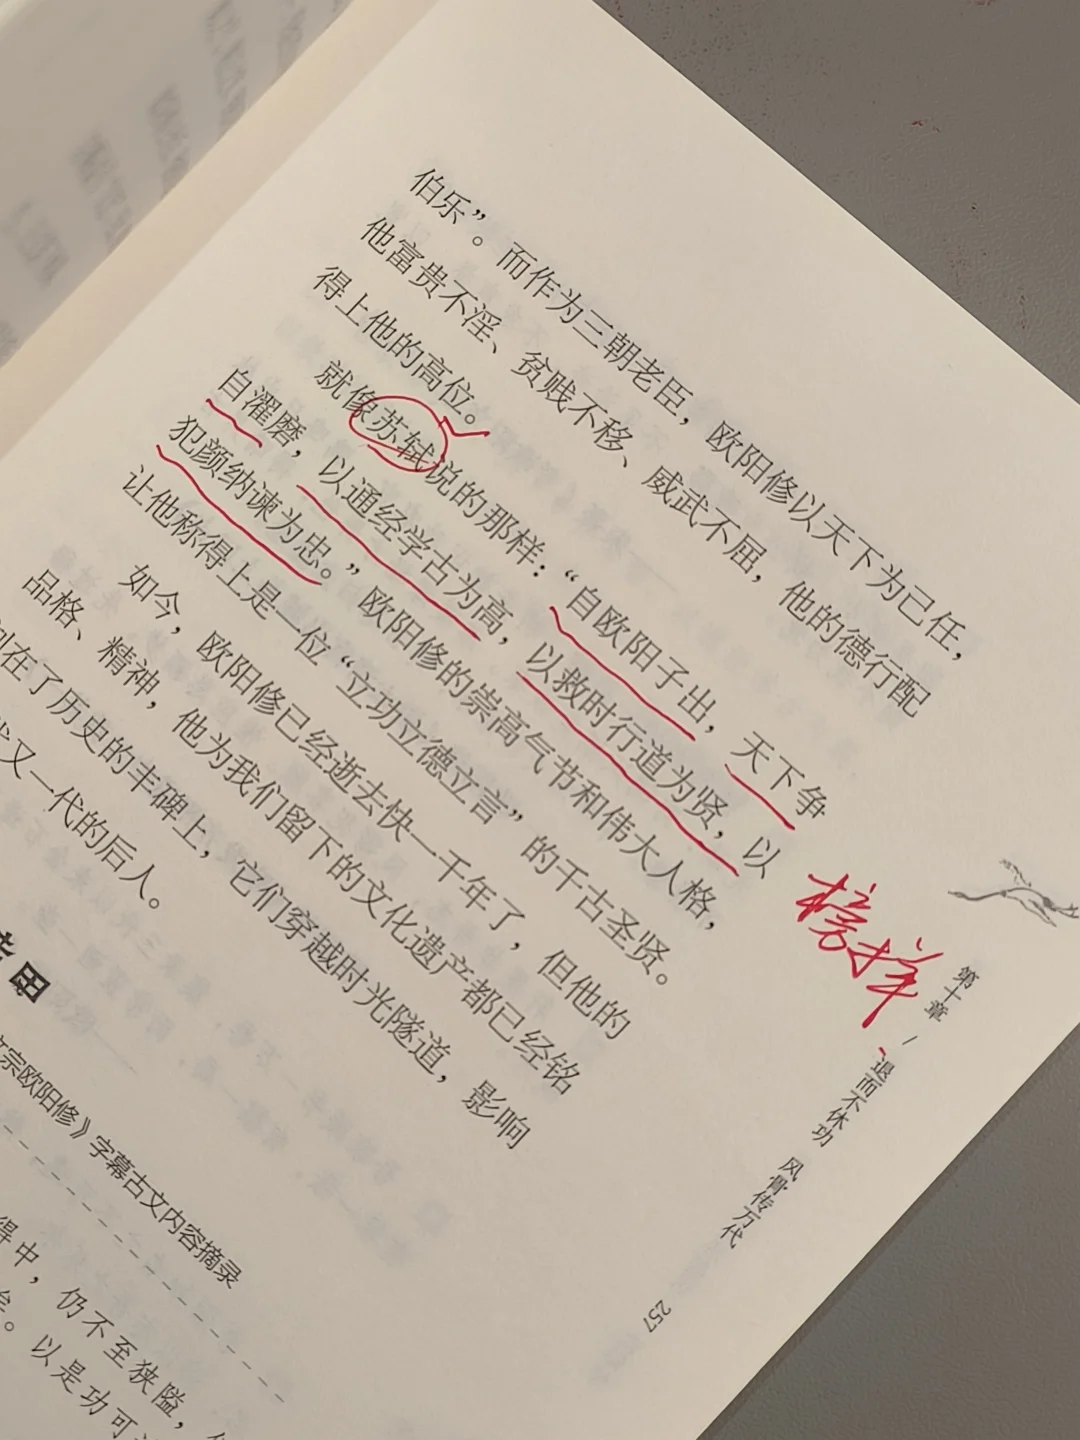 伯乐”。而作为三朝老臣，欧阳修以天下为己任，
他富贵不淫、贫贱不移、威武不屈，他的德行配
得上他的高位。
就像苏轼说的那样：“自欧阳子出，天下争
自濯磨，以通经学古为高，以救时行道为贤，以
犯颜纳谏为忠。”欧阳修的崇高气节和伟大人格，
让他称得上是一位“立功立德立言”的千古圣贤。
如今，欧阳修已经逝去快一千年了，但他的
品格、精神，他为我们留下的文化遗产都已经铭
刻在了历史的丰碑上，它们穿越时光隧道，影响
又一代的后人。
宗欧阳修》字幕古文内容摘录
得中，仍不至狭隘，
。以是功可
榜样
第十章 / 退而不休功 风骨传万代
257